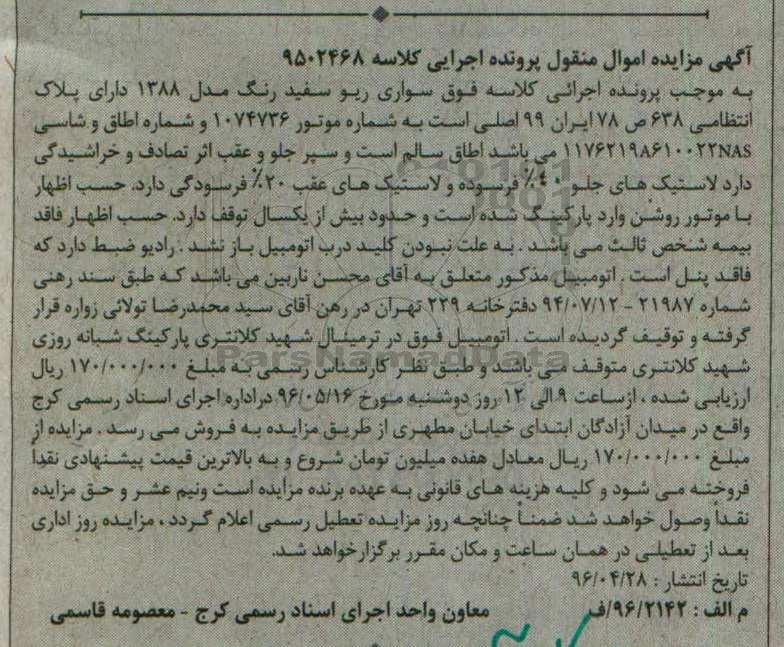 آگهی مزایده اموال منقول پرونده اجرایی کلاسه ۹۵۰۲۴۶۸
به موجب پرونده اجرائی کلاسه فوق سواری ریو سفید رنگ مدل ۱۳۸۸ دارای پلاک
انتظامی ۶۳۸ ص ۷۸ ایران ۹۹ اصلی است به شماره موتور ۱۰۷۴۷۳۶ و شماره اطاق و شاسی
۱۱۷۶۲۱۹۸۶۱۰۰۲۲NAS می باشد اطاق سالم است و سپر جلو و عقب اثر تصادف و خراشیدگی
دارد لاستیک های جلو ۴۰٪ فرسوده و لاستیک های عقب ۲۰٪ فرسودگی دارد. حسب اظهار
با موتور روشن وارد پارکینگ شده است و حدود بیش از یکسال توقف دارد. حسب اظهار فاقد
بیمه شخص ثالث می باشد . به علت نبودن کلید درب اتومبیل باز نشد . رادیو ضبط دارد که
فاقد پنل است . اتومبیل مذکور متعلق به آقای محسن ناربین می باشد که طبق سند رهنی
شماره ۲۱۹۸۷ - ۹۴/۰۷/۱۲ دفترخانه ۲۲۹ تهران در رهن آقای سید محمدرضا تولائی زواره قرار
گرفته و توقیف گردیده است . اتومبیل فوق در ترمینال شهید کلانتری پارکینگ شبانه روزی
شهید کلانتری متوقف می باشد و طبق نظر کارشناس رسمی به مبلغ ۱۷۰/۰۰۰/۰۰۰ ریال
ارزیابی شده ، از ساعت ۹ الی ۱۲ روز دوشنبه مورخ ۹۶/۰۵/۱۶ دراداره اجرای اسناد رسمی کرج
واقع در میدان آزادگان ابتدای خیابان مطهری از طریق مزایده به فروش می رسد . مزایده از
مبلغ ۱۷۰/۰۰۰/۰۰۰ ریال معادل هفده میلیون تومان شروع و به بالاترین قیمت پیشنهادی نقداً
فروخته می شود و کلیه هزینه های قانونی به عهده برنده مزایده است ونیم عشر و حق مزایده
نقداً وصول خواهد شد ضمناً چنانچه روز مزایده تعطیل رسمی اعلام گردد ، مزایده روز اداری
بعد از تعطیلی در همان ساعت و مکان مقرر برگزارخواهد شد.
تاریخ انتشار : ۹۶/۰۴/۲۸
م الف : ۹۶/۲۱۴۲/ف معاون واحد اجرای اسناد رسمی کرج - معصومه قاسمی
ParsNamadData